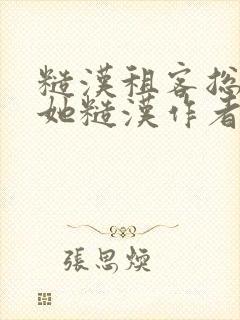 糙漢租客總
她糙漢作者
張思煐